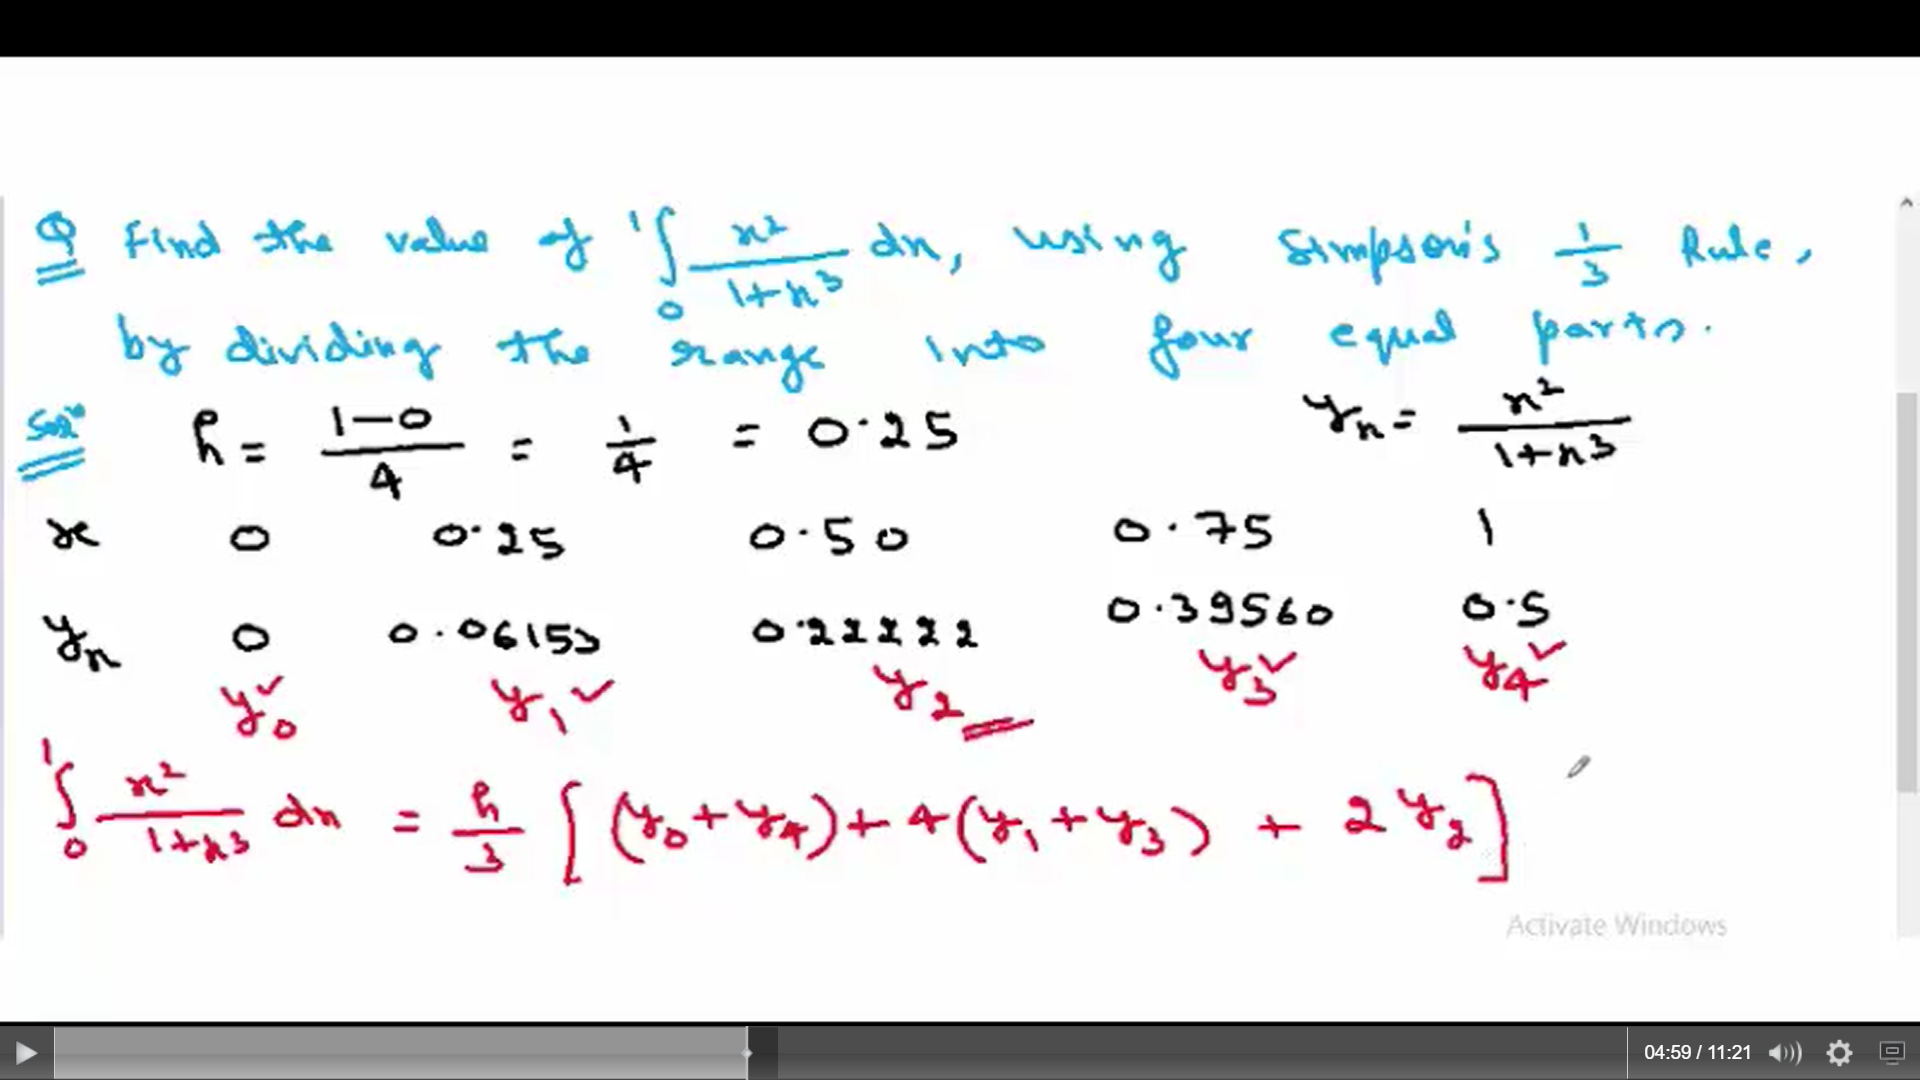 Q Find the value of ₀∫¹ x²/(1+x³) dx, using Simpson's 1/3 Rule,
by dividing the range into four equal parts.
Solⁿ h = (1-0)/4 = 1/4 = 0.25 yₓ = x²/(1+x³)
x 0 0.25 0.50 0.75 1
yₓ 0 0.06153 0.22222 0.39560 0.5
y₀✓ y₁✓ y₂ y₃✓ y₄✓
₀∫¹ x²/(1+x³) dx = h/3 [(y₀+y₄)+4(y₁+y₃) + 2y₂]
Activate Windows
04:59 / 11:21